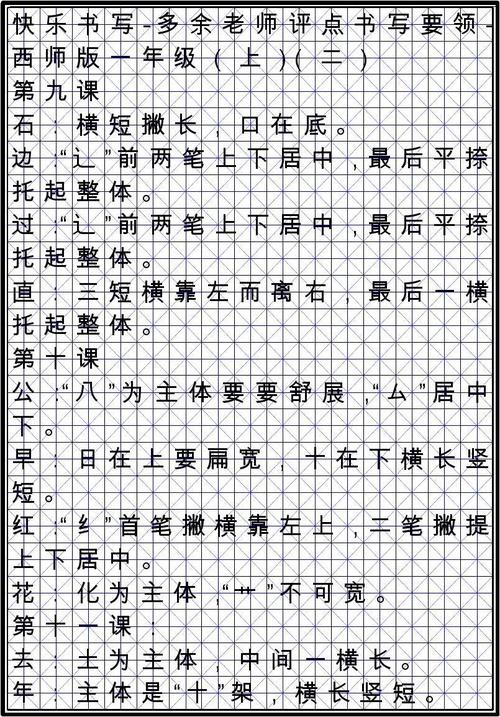 快乐书写-多余老师评点书写要领-
西师版一年级(上)(二)
第九课
石:横短撇长,口在底。
边:“辶”前两笔上下居中,最后平捺
托起整体。
过:“辶”前两笔上下居中,最后平捺
托起整体。
直:三短横靠左而离右,最后一横
托起整体。
第十课
公:“八”为主体要要舒展,“厶”居中
下。
早:日在上要扁宽,十在下横长竖
短。
红:“纟”首笔撇横靠左上,二笔撇提
上下居中。
花:化为主体,“艹”不可宽。
第十一课:
去:土为主体,中间一横长。
年:主体是“十”架,横长竖短。